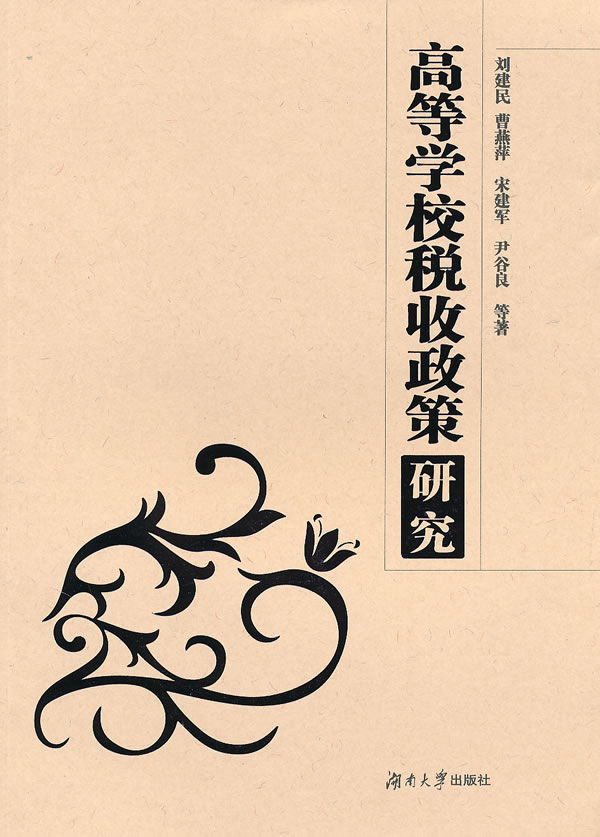 刘建民 曹燕萍 宋建军 尹谷良 等著
高等学校税收政策研究
湖南大学出版社